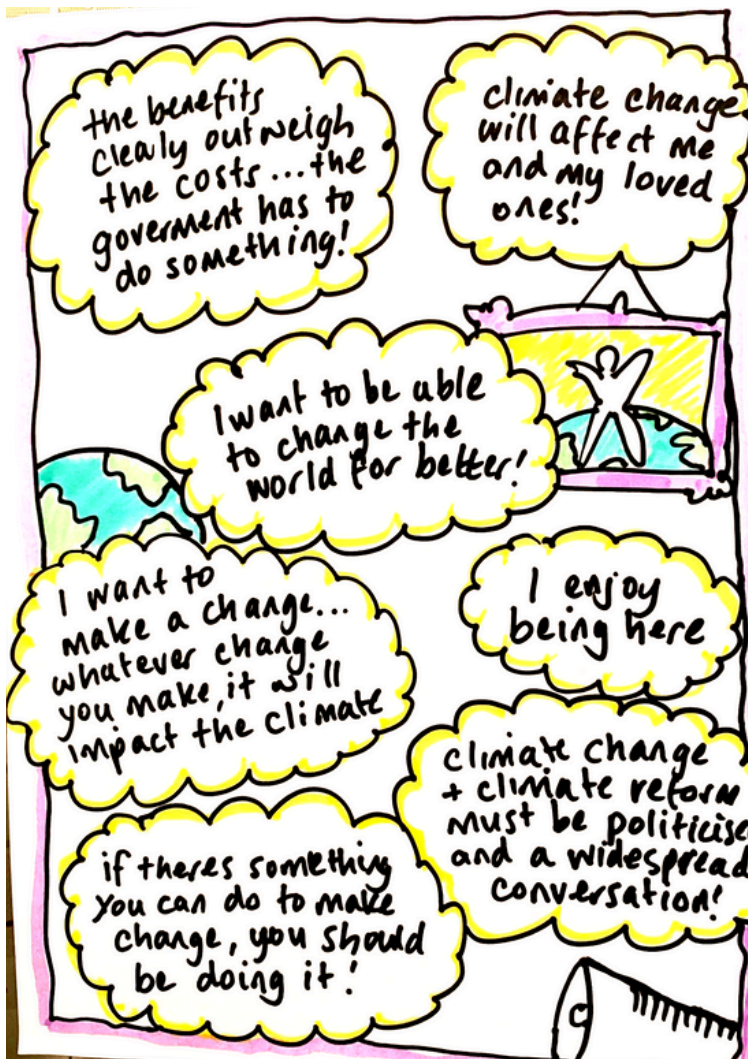 the benefits
clearly outweigh
the costs...the
goverment has to
do something!
climate change
will affect me
and my loved
ones!
I want to be able
to change the
world for better!
I want to
make a change...
whatever change
you make, it will
impact the climate
I enjoy
being here
climate change
+ climate reform
must be politicise
and a widespread
conversation!
if theres something
you can do to make
change, you should
be doing it!